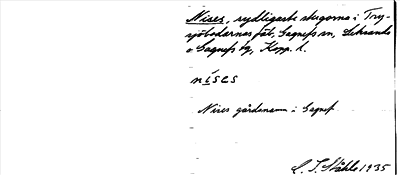 Nises, sydligaste stugorna i Try-
sjöbodarnas fäb., Sagnefs sn, Leksands
o Gagnefs tg, Kopp. l.
nises
Nises gårdsnamn i Gagnef
L. I. Ståhle 1935